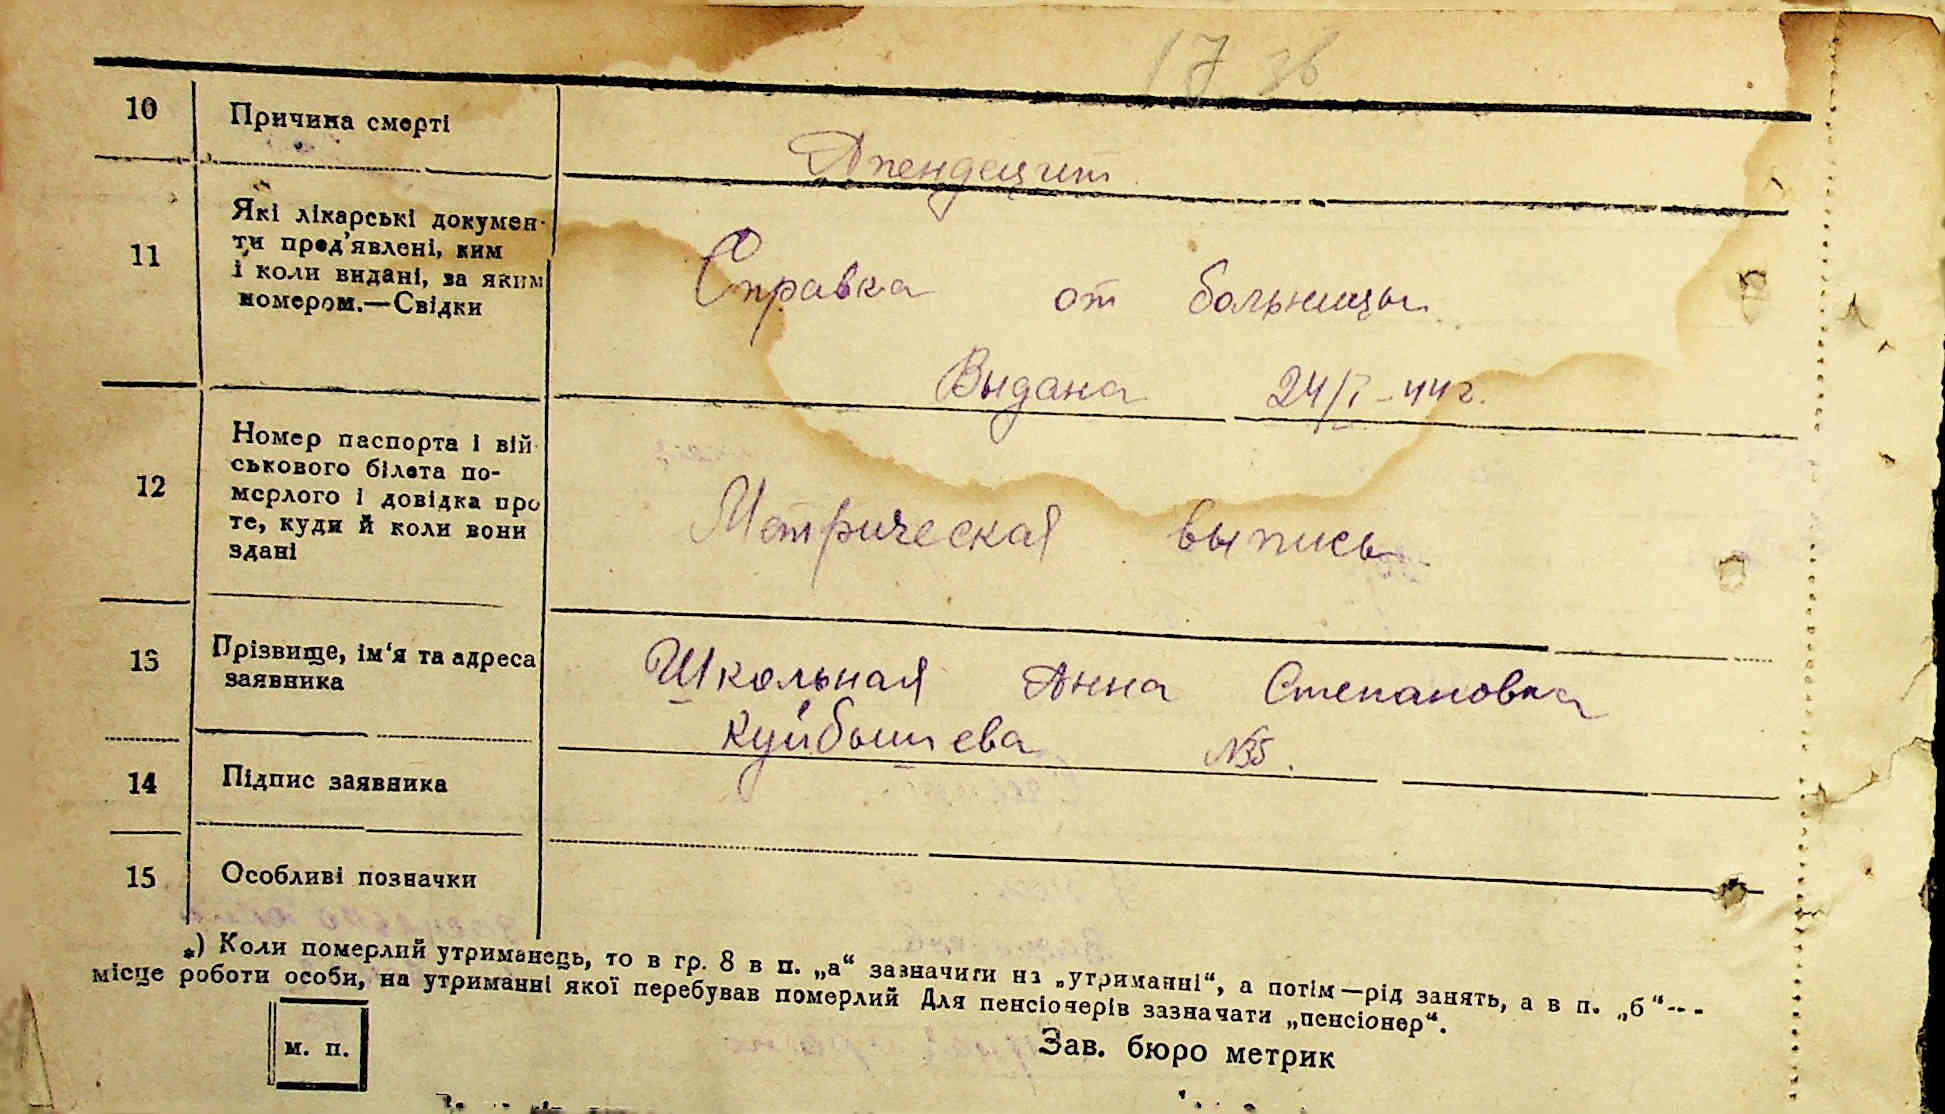 17 36
10 Причина смерті
Апендецит
11 Які лікарські докумен-
ти пред'явлені, ким
і коли видані, за яким
номером.—Свідки
Справка от больницы
Выдана 24/I-44г.
12 Номер паспорта і вій-
ськового білета по-
мерлого і довідка про
те, куди й коли вони
здані
Метрическая выпись
13 Прізвище, ім'я та адреса
заявника
Школьная Анна Степановна
Куйбышева №35.
14 Підпис заявника
15 Особливі позначки
*) Коли померлий утриманець, то в гр. 8 в п. „а“ зазначити на „утриманні“, а потім—рід занять, а в п. „б“--
місце роботи особи, на утриманні якої перебував померлий Для пенсіонерів зазначати „пенсіонер“.
м. п.
Зав. бюро метрик